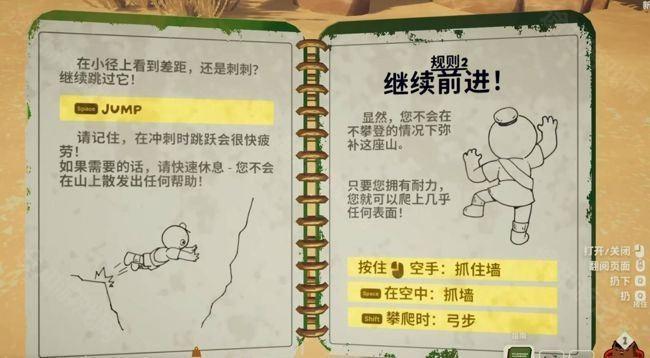 在小径上看到差距，还是刺刺？
继续跳过它！
Space JUMP
请记住，在冲刺时跳跃会很快疲
劳！
如果需要的话，请快速休息 - 您不会
在山上散发出任何帮助！
规则2
继续前进！
显然，您不会在
不攀登的情况下弥
补这座山。
只要您拥有耐力，
您就可以爬上几乎
任何表面！
按住 空手：抓住墙
Space 在空中：抓墙
Shift 攀爬时：弓步
打开/关闭
翻阅页面
扔下
扔 按住
指南
1